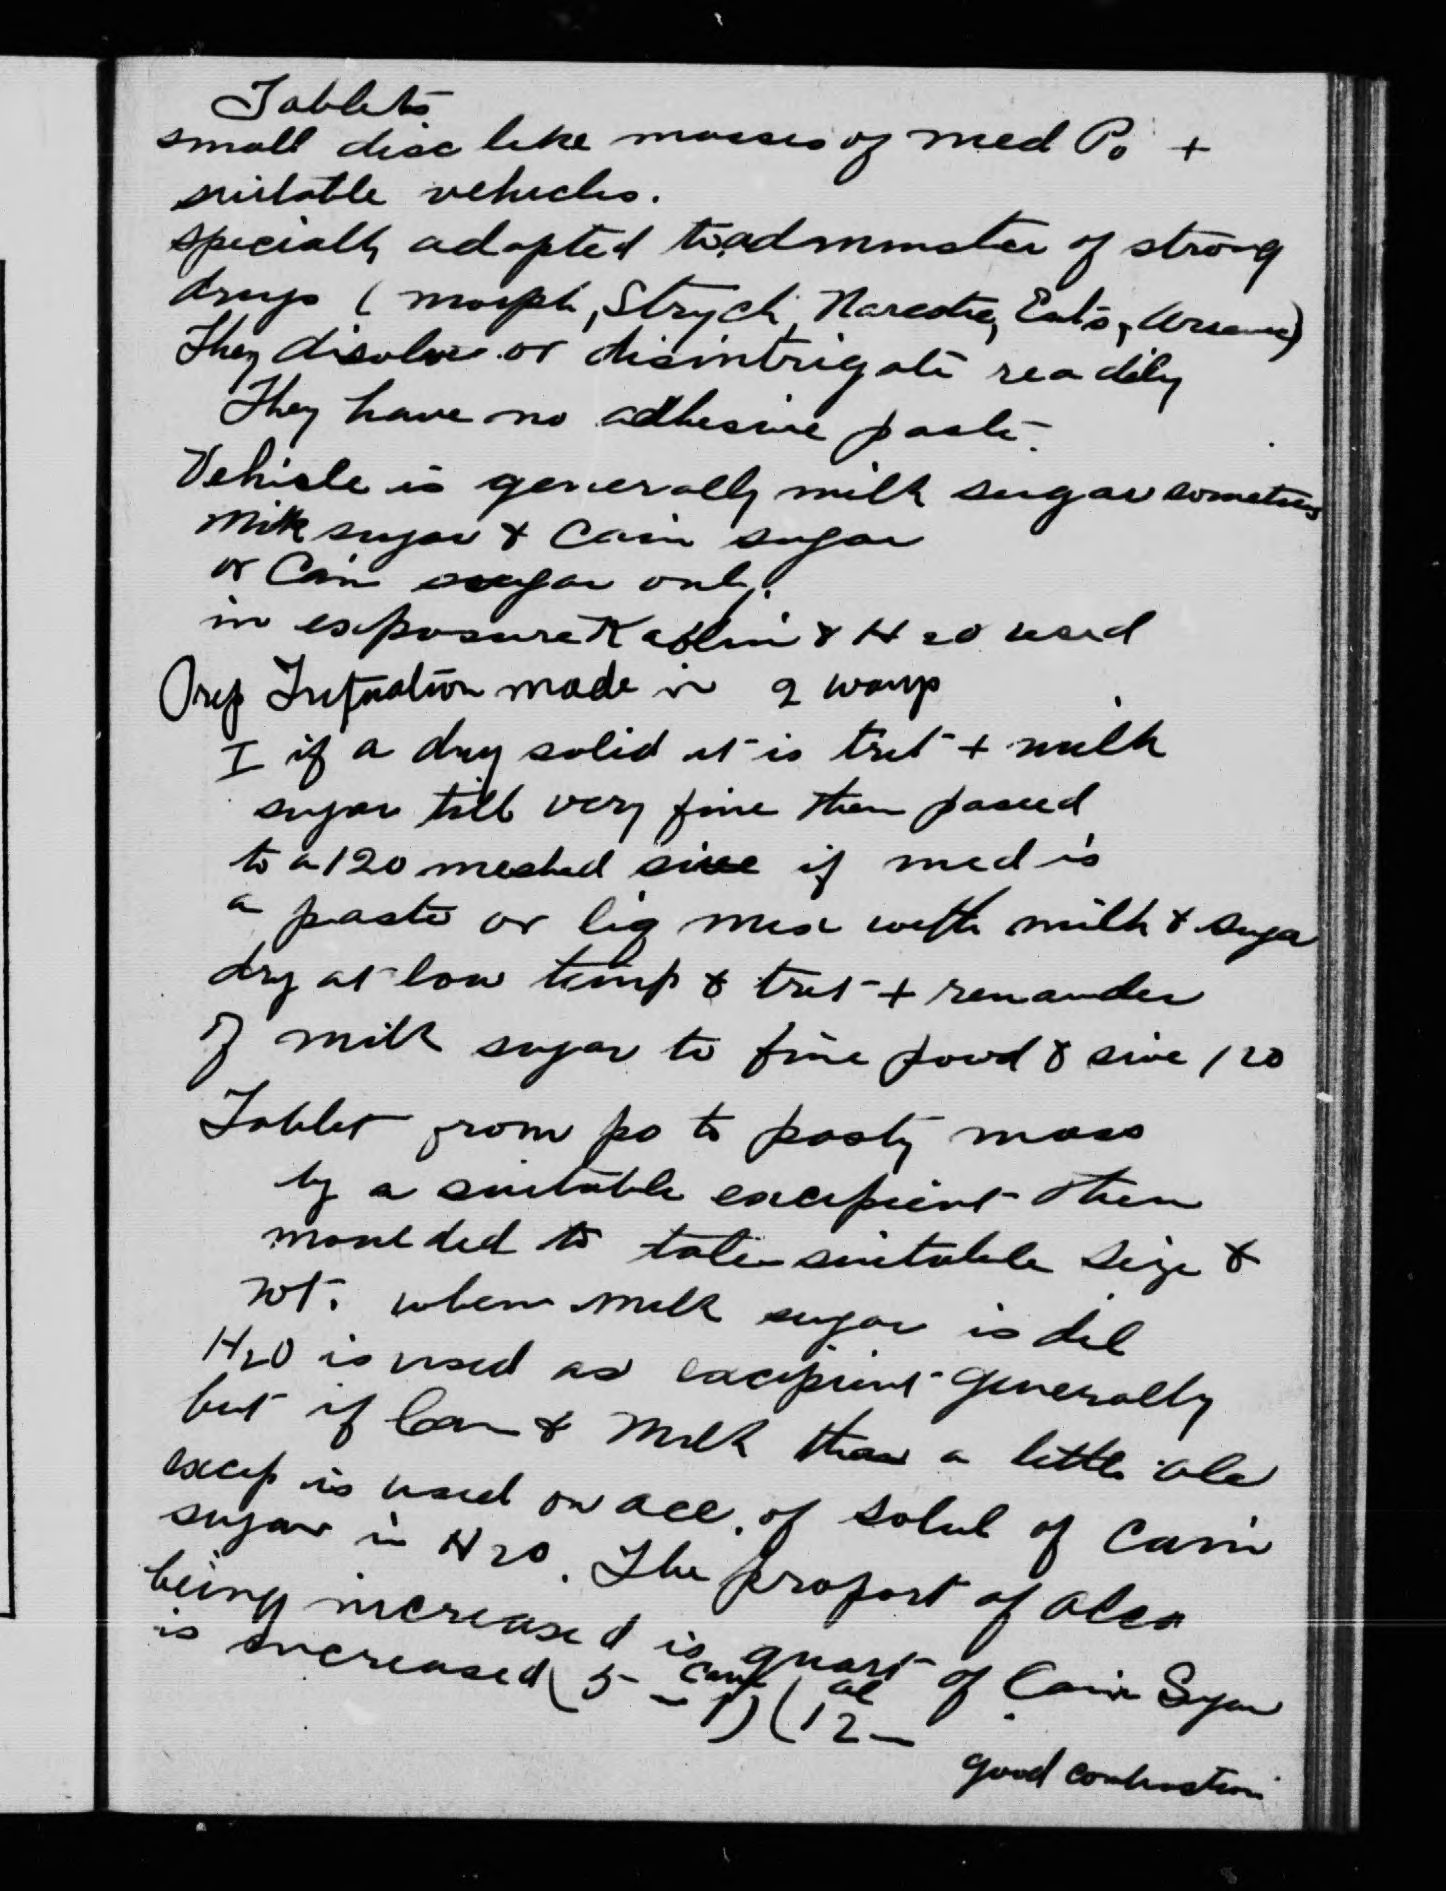 Tablets
small disc like masses of med Po +
suitable vehicles.
specially adapted to administer of strong
drugs ( morph, Strych, Narcotic, Exts,
They disolve or disintrigate readily
They have no adhesive paste.
Vehicle is generally milk sugar sometimes
Milk sugar & Cain sugar
or Cain sugar only.
in exposure Kaolin & H2O used
Prep Trituration made in 2 ways
I if a dry solid it is trit + milk
sugar till very fine then passed
to a 120 meshed sive if med is
a paste or liq mix with milk & sugar
dry at low temp & trit + remainder
of milk sugar to fine powd & sive 120
Tablet from po to pasty mass
by a suitable excipient then
moulded to suitable size &
wt. when milk sugar is dil
H2O is used as excipient generally
but if Can & Milk than a little alc
excip is used on acc. of solub of Cain
sugar in H2O. The proport of alco
being increased is quant of Cain Sugar
is increased ( 5 - cane 1) ( al 12 -
good combination